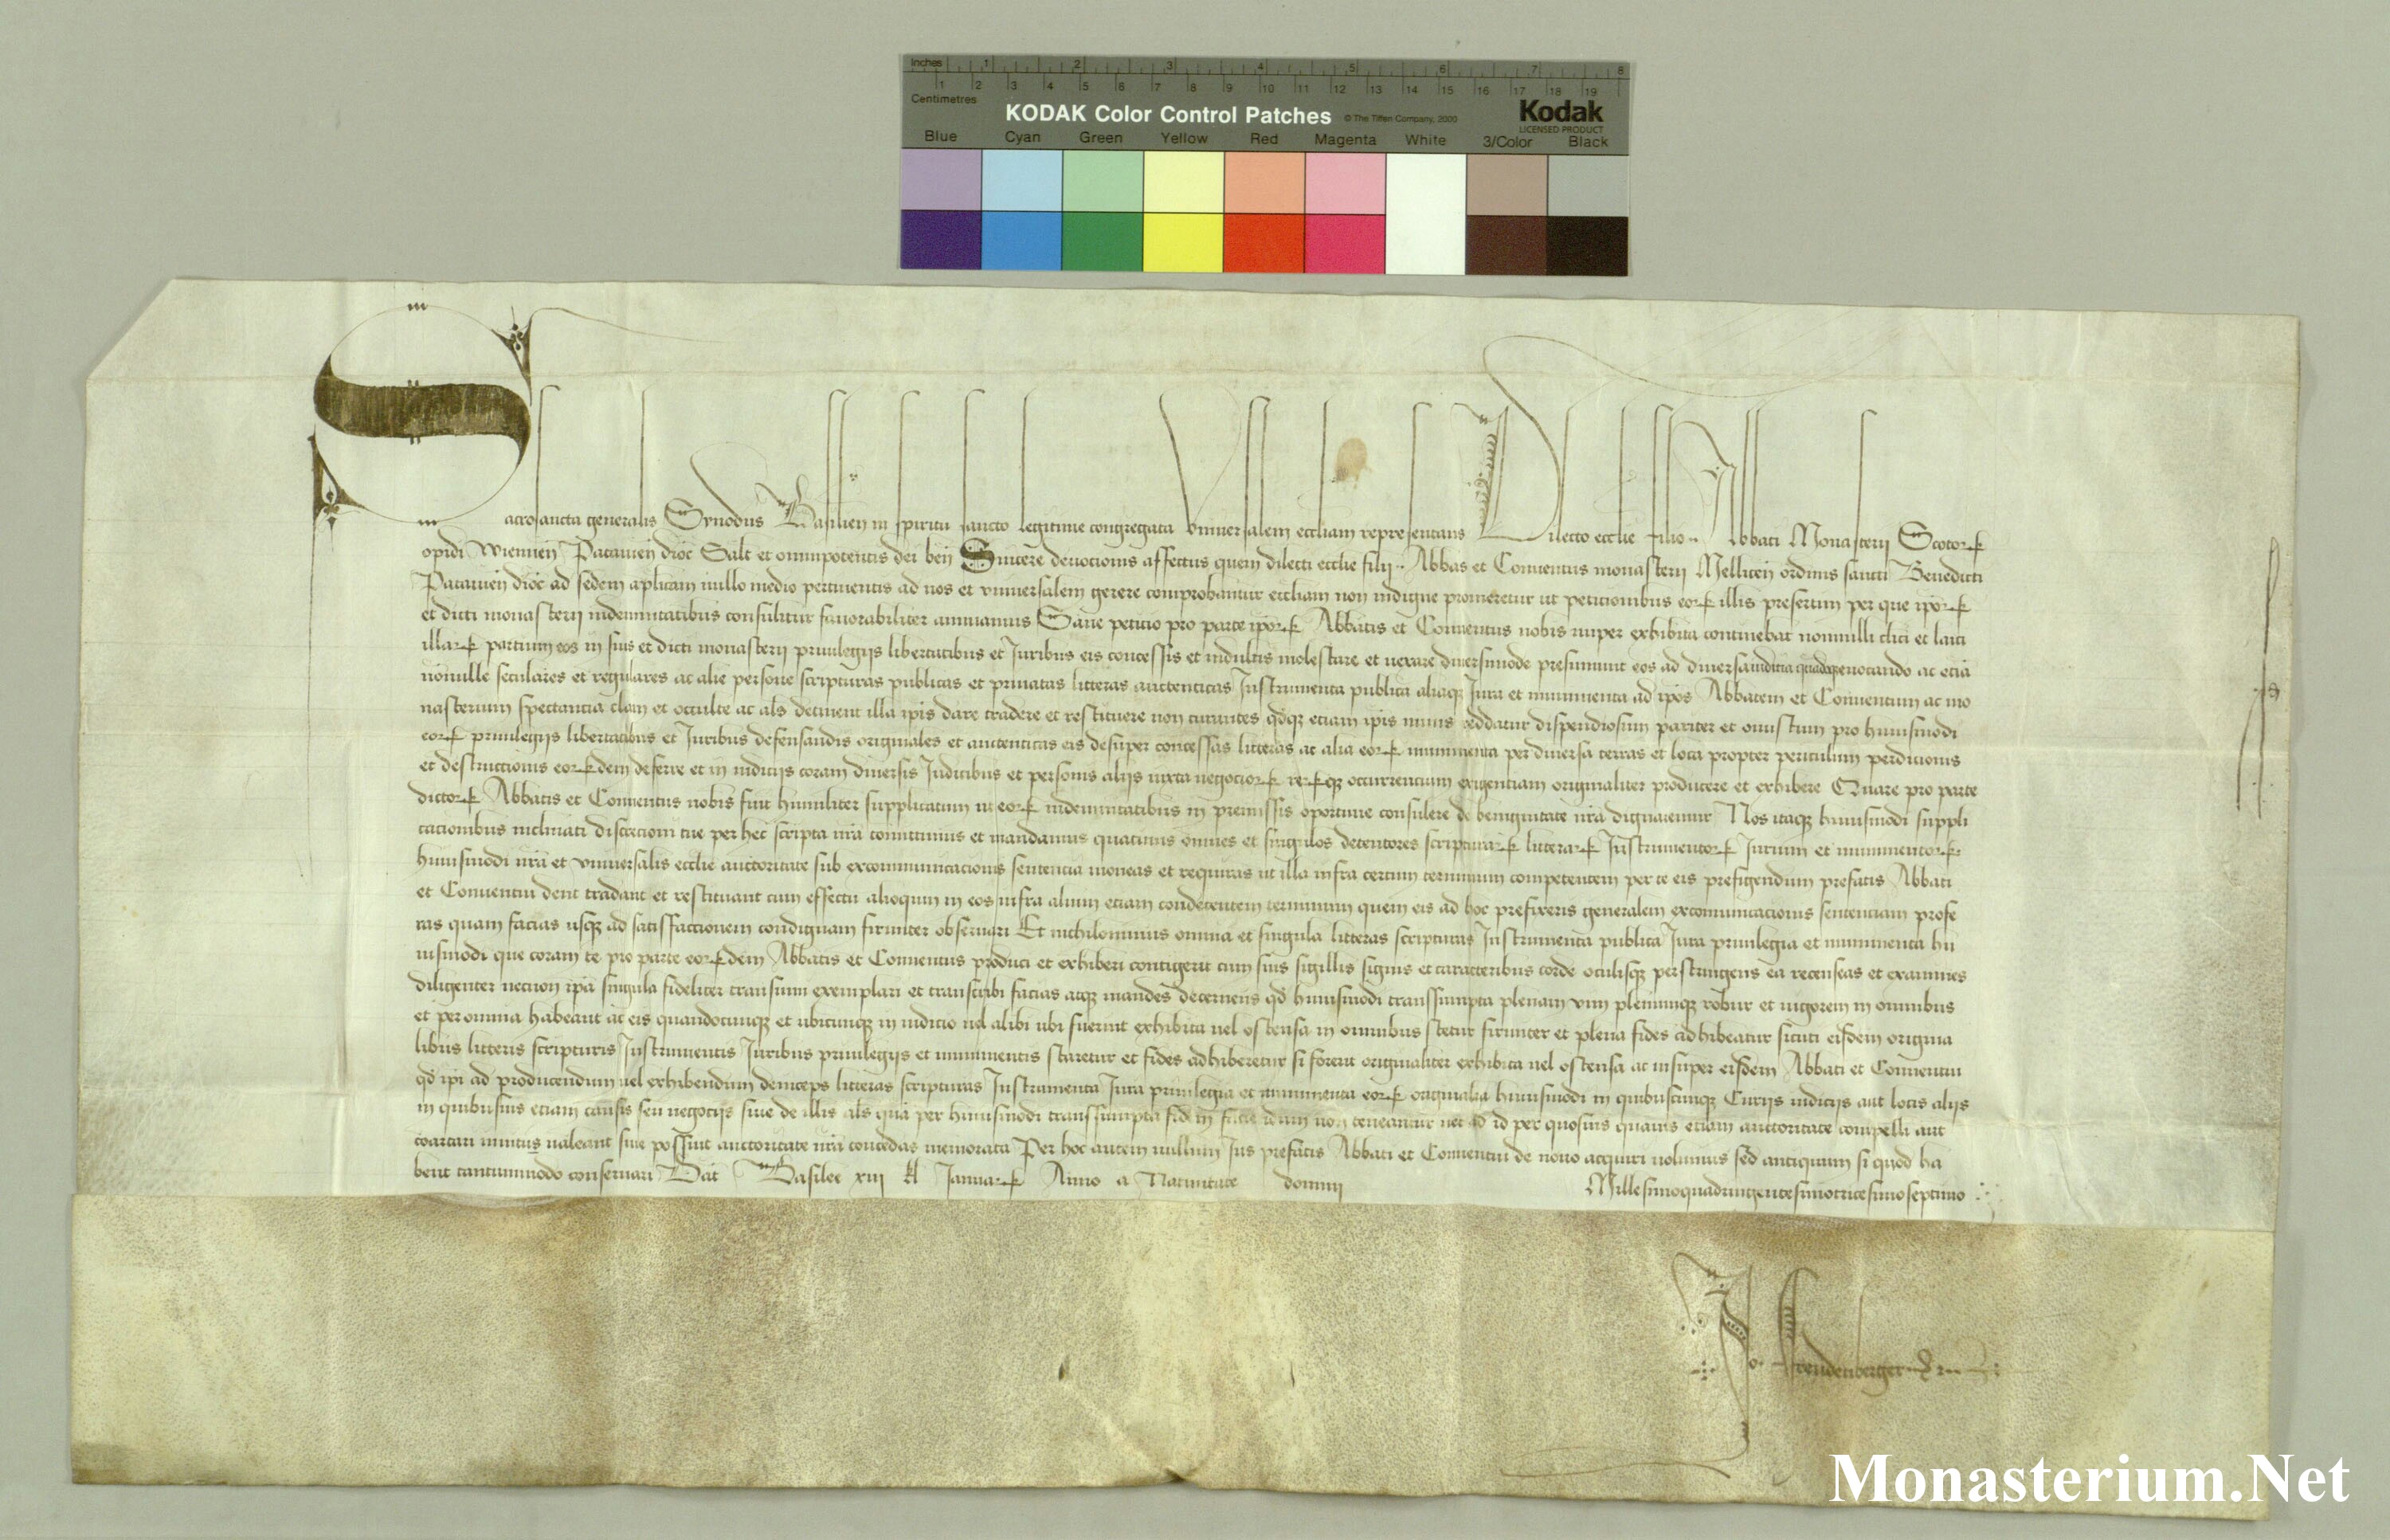 Inches 1 2 3 4 5 6 7 8
1 2 3 4 5 6 7 8 9 10 11 12 13 14 15 16 17 18 19
Centimetres
KODAK Color Control Patches © The Tiffen Company, 2000 Kodak
LICENSED PRODUCT
Blue Cyan Green Yellow Red Magenta White 3/Color Black
Sacrosancta generalis Synodus Basilien in spiritu sancto legitime congregata Universalem eccliam representans Dilecto ecclie filio Abbati Monasterij Scotor
opidi Wiennen Patavien dioc Salt et omnipotentis dei ben Sincere devocionis affectus quem dilecti ecclie filij Abbas et Conventus monasterij Mellicen ordinis sancti Benedicti
Patavien dioc ad sedem aplicam nullo medio pertinentis ad nos et universalem gerere comprobantur eccliam non indigne promeretur ut peticionibus eor illis presertim per que ipor
et dicti monasterij indemnitatibus consulitur favorabiliter annuamus Sane peticio pro parte ipor Abbatis et Conventus nobis nuper exhibita continebat nonnulli clici et laici
illar partium eos in suis et dicti monasterij privilegijs libertatibus et Juribus eis concessis et indultis molestare et vexare diversimode presumunt eos ad diversa iudicia evocando ac etia
nonulle seculares et regulares ac alie persone scripturas publicas et privatas litteras auctenticas Instrumenta publica aliaq Jura et munimenta ad ipos Abbatem et Conventum ac mo
nasterium spectantia clam et occulte ac als detinent illa ipis dare tradere et restituere non curantes qdq etiam ipis nimis reddatur dispendiosum pariter et onustum pro huiusmodi
eor privilegijs libertatibus et Juribus defensandis originales et autenticas eis desuper concessas litteras ac alia eor munimenta per diversa terras et loca propter periculum perdicionis
et destructionis eordem deferre et in iudicijs coram diversis Judicibus et personis alijs iuxta negocior rerq occurrencium exigentiam originaliter producere et exhibere Quare pro parte
dictor Abbatis et Conventus nobis fuit humiliter supplicatum ut eor indemnitatibus in premissis oportune consulere de benignitate nra dignaremur Nos itaq huiusmodi suppli
cacionibus inclinati discrecioni tue per hec scripta nra comittimus et mandamus quatinus omnes et singulos detentores scripturar litterar Instrumentor Jurium et munimentor
huiusmodi nra et universalis ecclie auctoritate sub excommunicacionis sentencia moneas et requiras ut illa infra certum terminum competentem per te eis prefigendum prefatis Abbati
et Conventui dent tradant et restituant cum effectu alioquin in eos infra alium etiam condecentem terminum quem eis ad hoc prefixeris generalem excomunicacionis sentenciam profe
ras quam facias usq ad satisfactionem condignam firmiter observari Et nichilominus omnia et singula litteras scripturas Instrumenta publica Jura privilegia et munimenta hu
iusmodi que coram te pro parte eordem Abbatis et Conventus produci et exhiberi contigerit cum suis sigillis signis et caracteribus corde oculisq perstringens ea recenseas et examines
diligenter necnon ipa singula fideliter transumi exemplari et transcribi facias atq mandes decernens qd huiusmodi transsumpta plenam vim plenumq robur et vigorem in omnibus
et per omnia habeant ac eis quandocunq et ubicunq in iudicio vel alibi ubi fuerint exhibita vel ostensa in omnibus stetur firmiter et plena fides adhibeatur sicuti eisdem origina
libus litteris scripturis Instrumentis Juribus privilegijs et munimentis staretur et fides adhiberetur si forent originaliter exhibita vel ostensa ac insuper eisdem Abbati et Conventui
qd ipi ad producendum vel exhibendum deinceps litteras scripturas Instrumenta Jura privilegia et munimenta eor originalia huiusmodi in quibuscunq Curijs iudicijs aut locis alijs
in quibusvis etiam causis seu negocijs sive de illis als qua per huiusmodi transsumpta fidem non teneantur nec ad id per quosvis quavis etiam auctoritate compelli aut
coartari inviti valeant sive possint auctoritate nra concedas memorata Per hoc autem nullum Jus prefatis Abbati et Conventui de novo acquiri volumus sed antiquum si quod ha
bent tantummodo conservari Dat Basilee xiij kl Januar Anno a Nativitate domini Millesimoquadringentesimotricesimoseptimo
Jo Freudenberger
Monasterium.Net